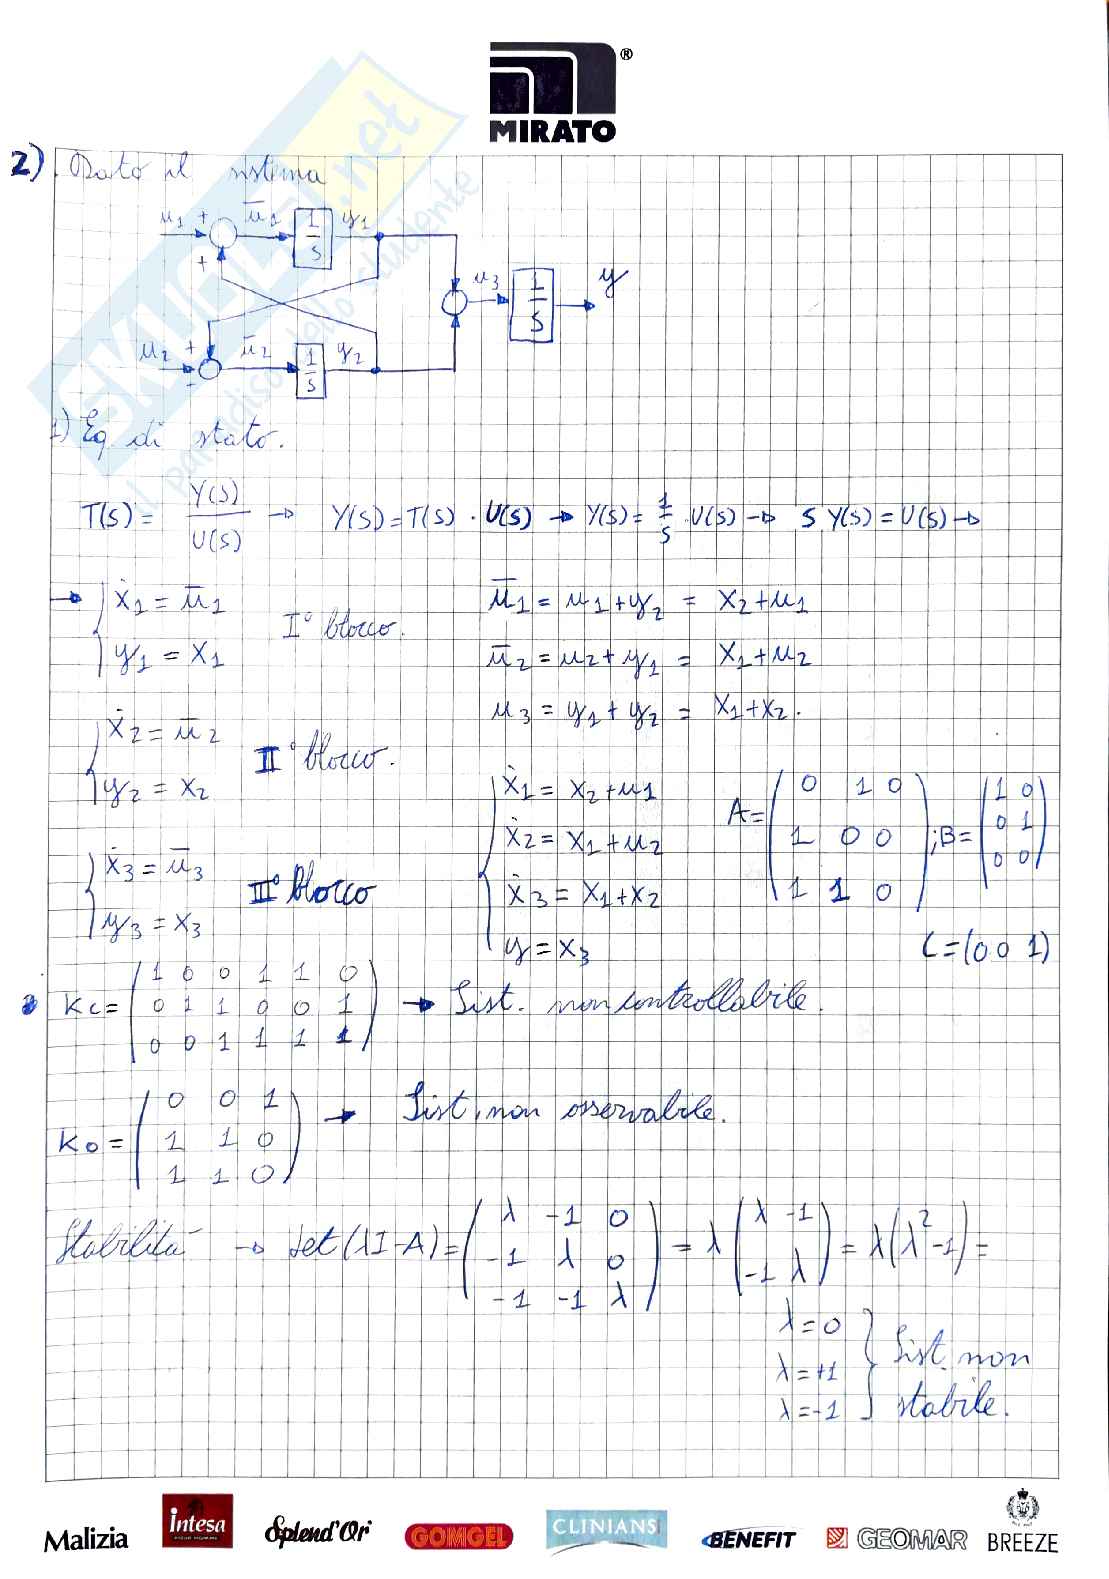 MIRATO®
SKUOLA.net
il paradiso dello studente
2) Dato il sistema
u1 + ū1 1/s y1
+
u3 1/s y
u2 + ū2 1/s y2
-
1) Eq. di stato.
T(s) = Y(s)/U(s) → Y(s) = T(s) · U(s) → Y(s) = 1/s · U(s) → s Y(s) = U(s) →
→ { ẋ1 = ū1
y1 = x1
I° blocco.
ū1 = u1 + y2 = x2 + u1
ū2 = u2 + y1 = x1 + u2
u3 = y1 + y2 = x1 + x2.
{ ẋ2 = ū2
y2 = x2
II° blocco.
{ ẋ3 = ū3
y3 = x3
II° blocco
{ ẋ1 = x2 + u1
ẋ2 = x1 + u2
ẋ3 = x1 + x2
y = x3
A = ( 0 1 0
1 0 0
1 1 0 ) ; B = ( 1 0
0 1
0 0 )
C = (0 0 1)
Kc = ( 1 0 0 1 1 0
0 1 1 0 0 1
0 0 1 1 1 1 ) → Sist. non controllabile.
Ko = ( 0 0 1
1 1 0
1 1 0 ) → Sist. non osservabile.
Stabilità → det(λI-A) = ( λ -1 0
-1 λ 0
-1 -1 λ ) = λ ( λ -1
-1 λ ) = λ(λ²-1) =
λ = 0
λ = +1
λ = -1
} Sist. non
stabile.
Malizia
intesa
Splend'Or
GOMGEL
CLINIANS
BENEFIT
GEOMAR
BREEZE